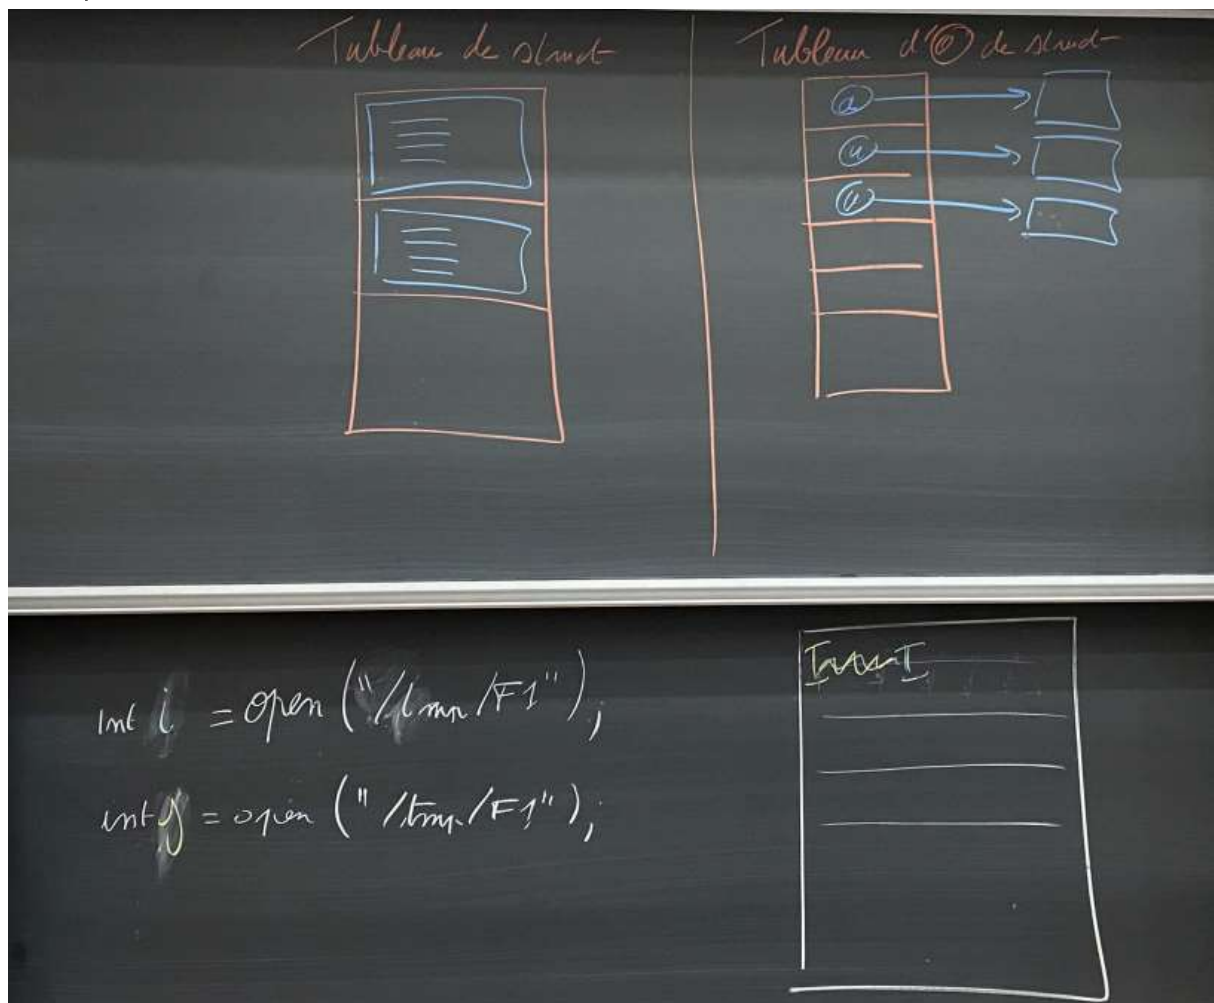 Tableau de struct
Tableau d'@ de struct
@
@
@
int i = open ("/tmp/F1");
int j = open ("/tmp/F1");